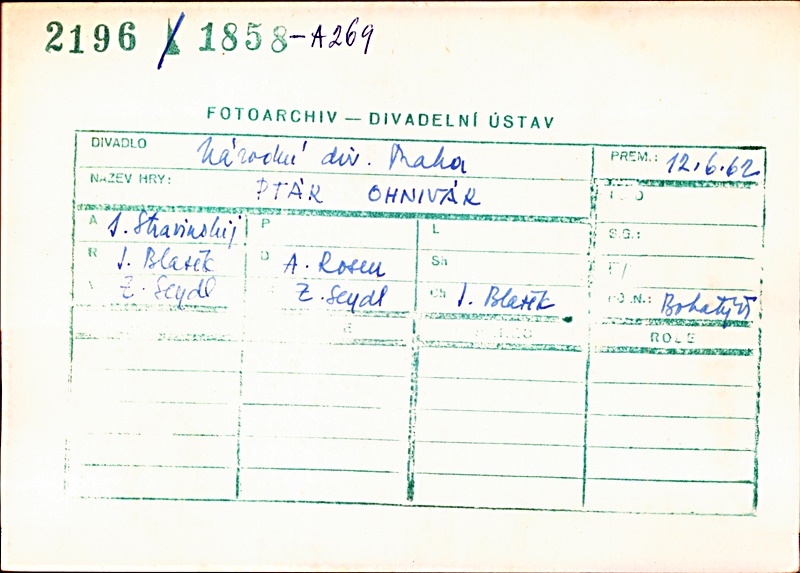 2196 / 1858-A269
FOTOARCHIV — DIVADELNÍ ÚSTAV
DIVADLO Národní div. Praha PREM.: 12.6.62
NÁZEV HRY: PTÁK OHNIVÁK
A I. Stravinskij P L S.G.:
R J. Blažek D A. Rosen Sh
Z. Seydl Z. Seydl Ch J. Blažek POZN.: Bohatýři
ROLE